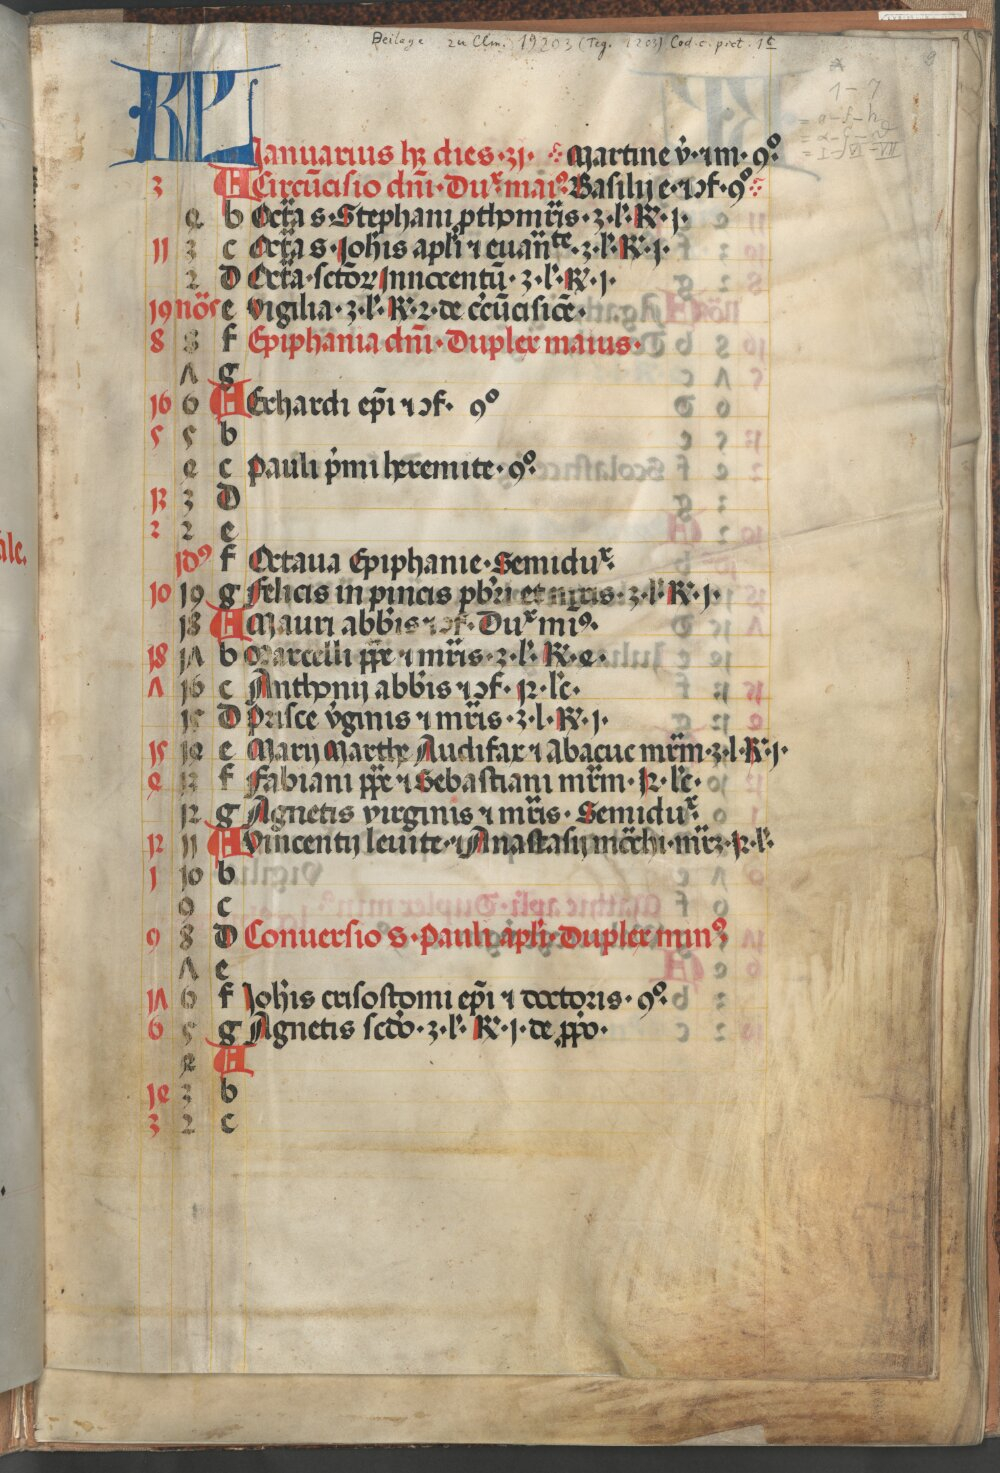 Beilage zu Clm. 19203 (Teg. 1203) Cod. c. pict. 1c
9
1 – 7
KL
Januarius hꝫ dies · 31 · Martine v̄ · ⁊ m · 9º
3 A Circūcisio dn̄i · Duˣ maiꝰ Basilij e · ⁊ ↄf · 9º
4 b Octā s · Stephani ꝓthomr̄is · 3 · l' · R' · j ·
11 3 c Octā s · Joh̄is apl'i ⁊ euan̄te · 3 · l' · R' · j ·
2 D Octā · sctōꝝ Innocentū · 3 · l' · R' · j ·
19 nōs e Vigilia · 3 · l' · R' · 2 · de c̄cūcisiōe ·
8 8 f Epiphania dn̄i · Duplex maius ·
7 g
16 6 A Erhardi ep̄i ⁊ ↄf · 9º
5 5 b
4 c Pauli p̄mi heremite · 9º
13 3 D
2 2 e
idꝰ f Octaua Epiphanie · Semiduˣ
10 19 g Felicis in pincis pb̄ri et mr̄is · 3 · l' · R' · j ·
18 A Mauri abb̄is ⁊ ↄf · Duˣ miꝰ ·
18 17 b Marcelli pp̄e ⁊ mr̄is · 3 · l' · R' · 4 ·
7 16 c Anthonij abb̄is ⁊ ↄf · 12 · lc̄ ·
15 D Prisce v̄ginis ⁊ mr̄is · 3 · l · R' · j ·
15 14 e Marij Marthe Audifax ⁊ Abacuc mr̄m · 3 · l · R' · j ·
4 13 f Fabiani pp̄e ⁊ Sebastiani mr̄m · 12 · lc̄ ·
12 g Agnetis virginis ⁊ mr̄is · Semiduˣ
12 11 A Vincentij leuite · ⁊ Anastasij mōchi · mr̄ꝫ · 12 · l' ·
1 10 b
9 c
9 8 D Conuersio s · Pauli apl'i · Duplex minꝰ
7 e
17 6 f Joh̄is crisostomi ep̄i ⁊ doctoris · 9º
6 5 g Agnetis scd̄o · 3 · l' · R' · j · de ꝓp̄o ·
4 A
14 3 b
3 2 c
ale.